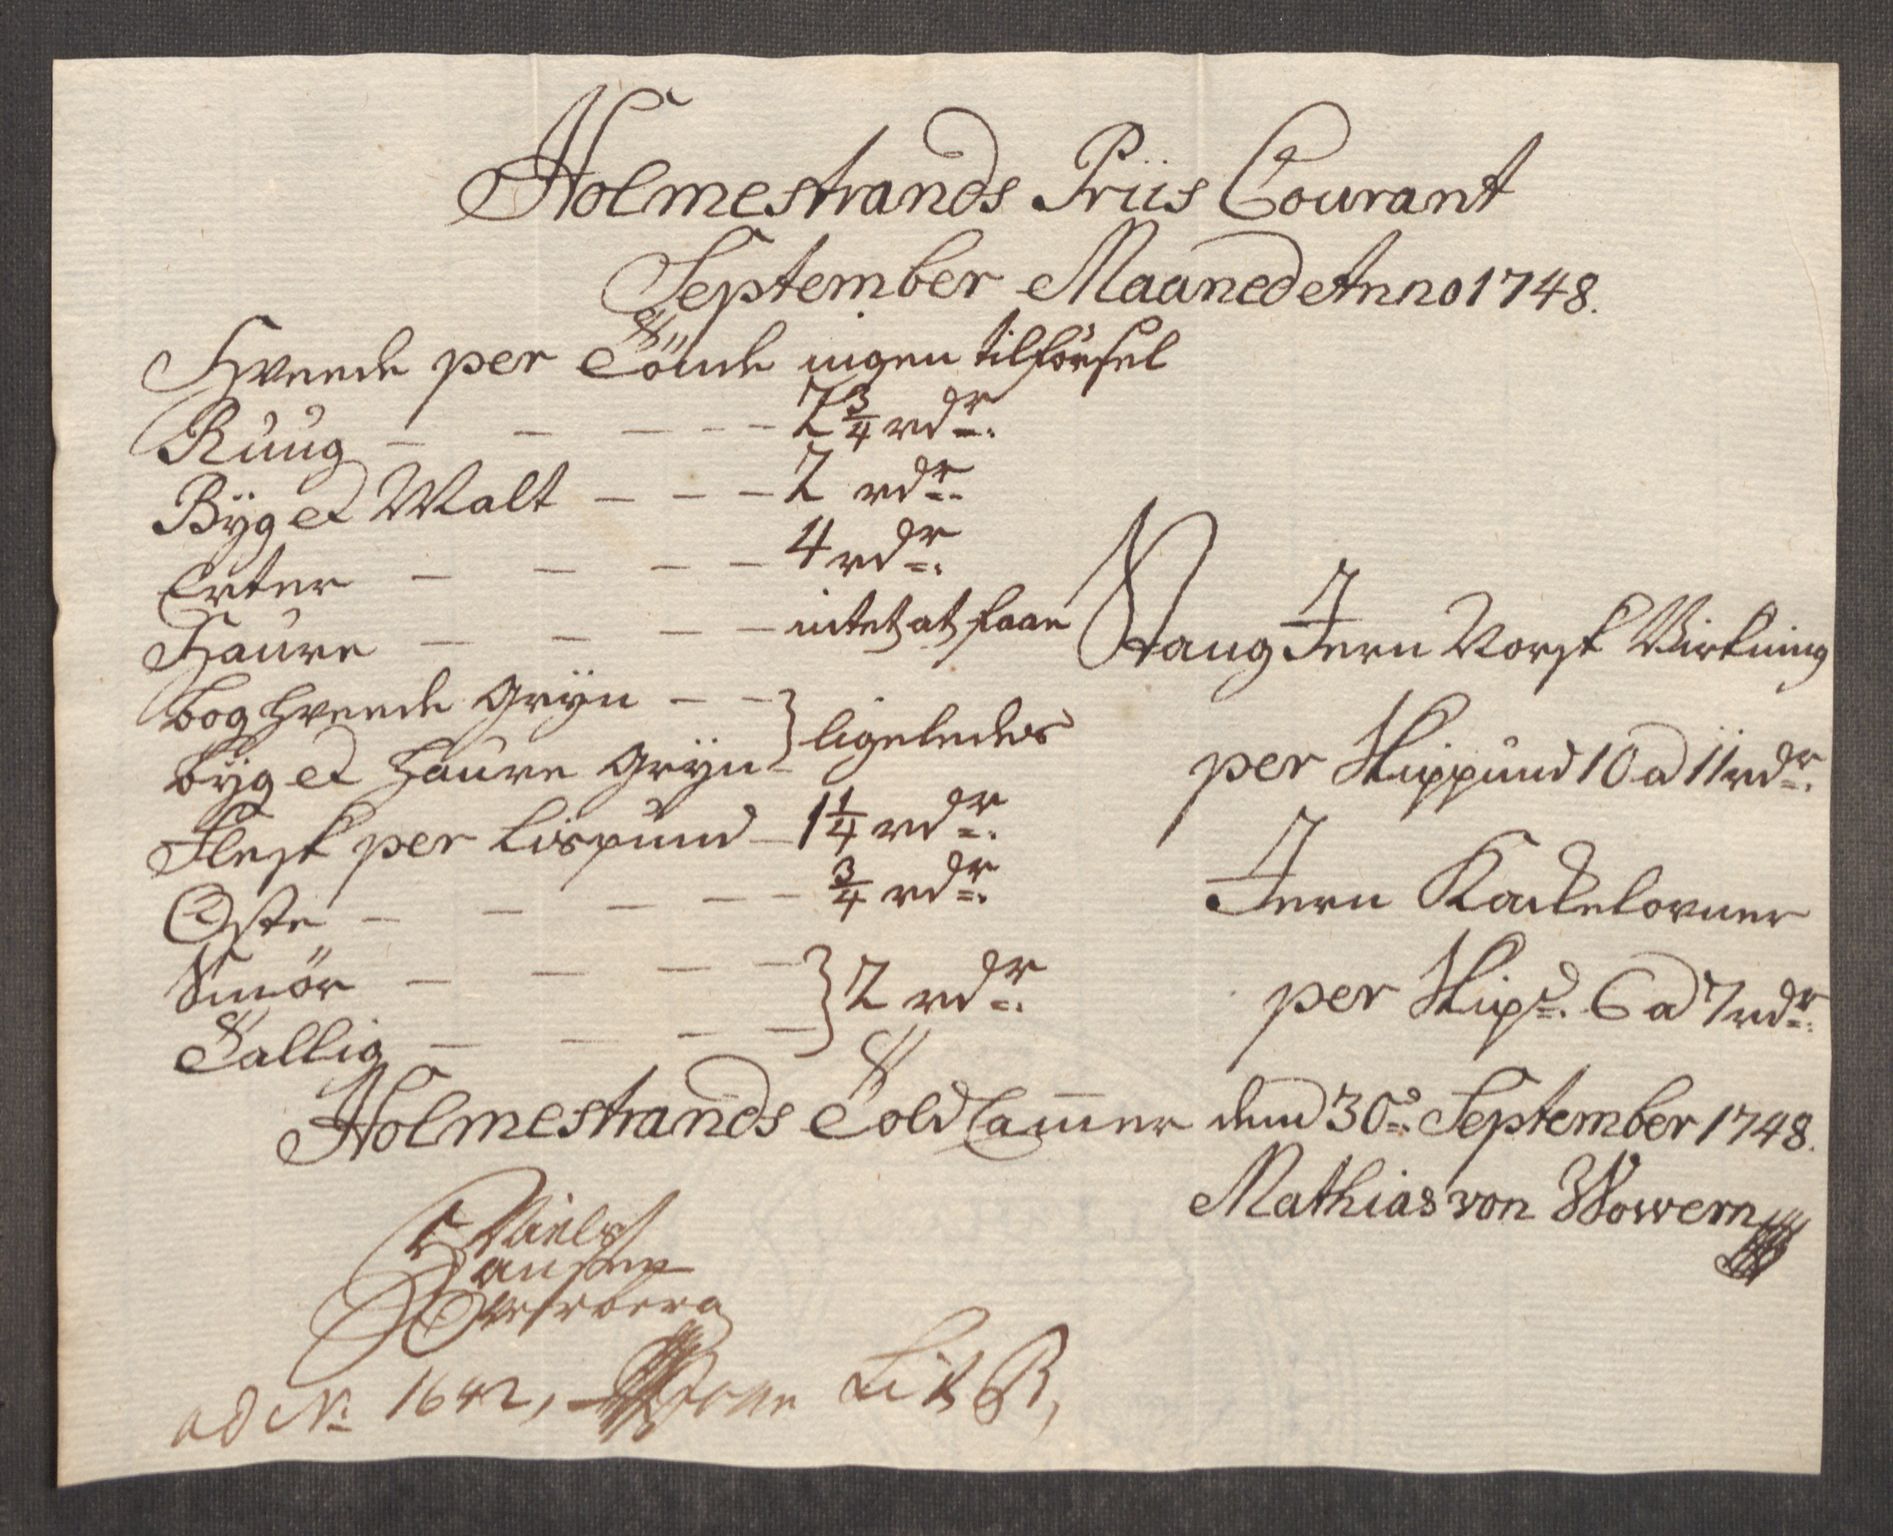 Holmestrands Priis Courant
September Maaned Anno 1748.
Hveede per Tönde ingen tilförsel
Ruug — — — — — 2 3/4 rdr.
Byg et Malt — — — 2 rdr.
Erter — — — — 4 rdr.
Haure — — — — intet at faae
bog hveede Gryn — —
byg et Haure Gryn — } ligeledes
Flesk per Lispund — 1 1/4 rdr.
Oste — — — — — 3/4 rdr.
Smör — — — —
Tallig — — — — } 2 rdr.
Stang Jern Norsk Virkning
per Skippund 10 a 11 rdr.
Jern Kackelovner
per Skipd. 6 a 7 rdr.
Holmestrands Told Cammer dend 30te September 1748.
Mathias von Wowern
Niels
Hansen
ad No. 1642, Lit B,